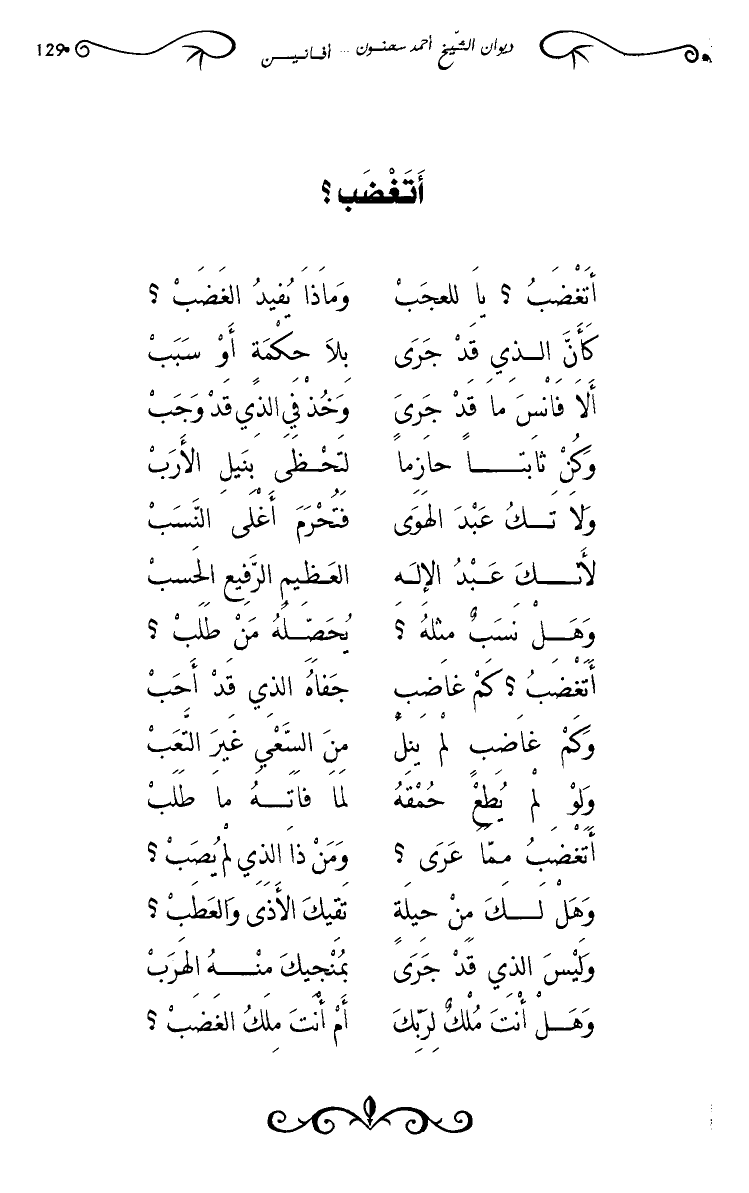 ديوان الشّيخ أحمد سحنون ... أفانيـــن 129
أَتَغْضَب ؟
أَتَغْضَبُ ؟ يا لَلعجَبْ وَماذَا يُفيدُ الغَضَبْ ؟
كَأَنَّ الــذي قَدْ جَرَى بلاَ حكْمَةٍ أَوْ سَبَبْ
أَلَا فَانْسَ ما قَدْ جَرَى وَخُذْ في الذي قَدْ وَجَبْ
وَكُنْ ثابتــــاً حازماً لتَحْــظَى بِنَيلِ الأَرَبْ
وَلَا تــكُ عَبْدَ الهَوَى فَتُحْرَمَ أَغْلَى النَّسَبْ
لأَنــــكَ عَبْدُ الإلَــه العَــظيمِ الرَّفيعِ الحَسبْ
وَهَــلْ نَسَبٌ مثلهُ ؟ يُحَصِّــلُهُ مَنْ طَلَبْ ؟
أَتَغْضَبُ ؟ كَمْ غاضبٍ جَفاهُ الذي قَدْ أَحَبْ
وَكَمْ غاضبٍ لَمْ يَنلْ منَ السَّعْيِ غَيرَ التَّعَبْ
وَلَوْ لَمْ يُطعْ حُمْقَهُ لَمَا فاتَــهُ ما طَلَبْ
أَتَغْضَبُ ممّا عَرَى ؟ وَمَنْ ذا الذي لَمْ يُصَبْ ؟
وَهَلْ لَــكَ مِنْ حيلَةٍ تَقيكَ الأَذَى وَالعَطَبْ ؟
وَلَيْسَ الذي قَدْ جَرَى بمُنْجيكَ منْــهُ الهَرَبْ
وَهَــلْ أَنْتَ مُلْكٌ لِرَبِّكَ أَمْ أَنْتَ مِلكُ الغَضَبْ ؟